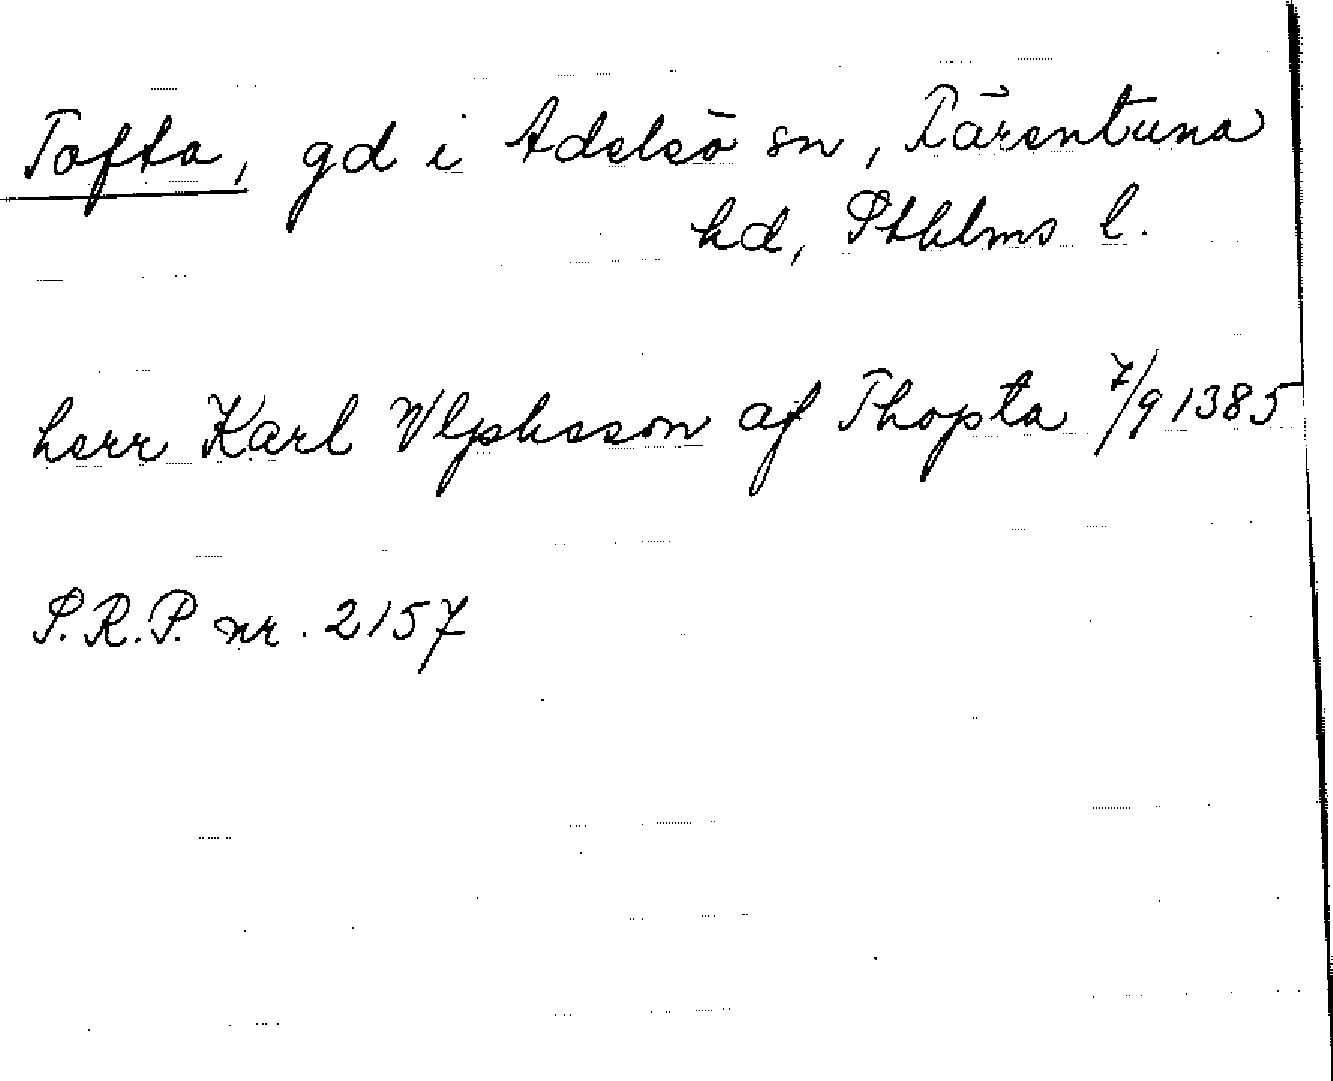 Tofta, gd i Adelsö sn, Färentuna
hd, Sthlms l.
herr Karl Vlphsson af Thopta 7/9 1385
S.R.P. nr. 2157